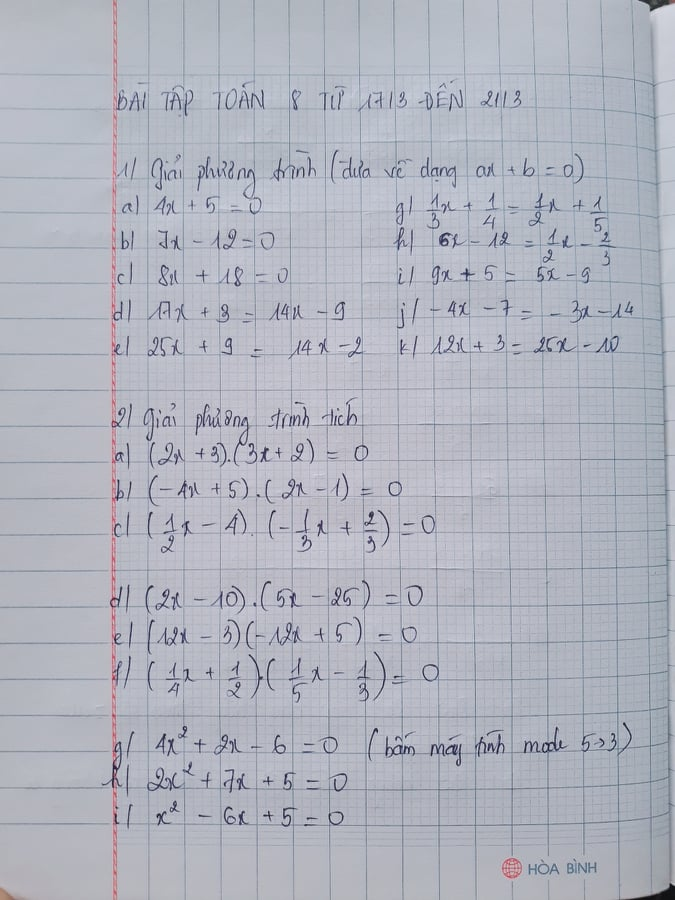 BÀI TẬP TOÁN 8 TỪ 17/3 ĐẾN 21/3
1/ Giải phương trình (đưa về dạng ax + b = 0)
a/ 4x + 5 = 0
b/ 7x - 12 = 0
c/ 8x + 18 = 0
d/ 17x + 3 = 14x - 9
e/ 25x + 9 = 14x - 2
g/ 1/3 x + 1/4 = 1/2 x + 1/5
h/ 6x - 12 = 1/2 x - 2/3
i/ 9x + 5 = 5x - 9
j/ -4x - 7 = -3x - 14
k/ 12x + 3 = 25x - 10
2/ Giải phương trình tích
a/ (2x + 3).(3x + 2) = 0
b/ (-4x + 5).(2x - 1) = 0
c/ (1/2 x - 4).(-1/3 x + 2/3) = 0
d/ (2x - 10).(5x - 25) = 0
e/ (12x - 3)(-12x + 5) = 0
f/ (1/4 x + 1/2).(1/5 x - 1/3) = 0
g/ 4x² + 2x - 6 = 0 (bấm máy tính mode 5→3)
h/ 2x² + 7x + 5 = 0
i/ x² - 6x + 5 = 0
HÒA BÌNH